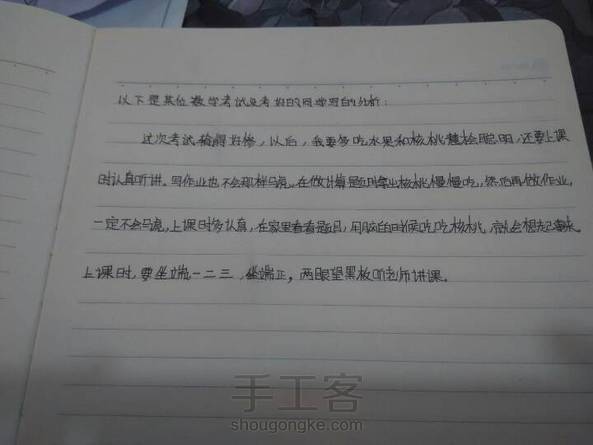 以下是某位数学考试没考好的同学写的分析：
这次考试搞得好惨，以后，我要多吃水果和核桃健脸聪明，还要上课
时认真听讲。写作业也不会那样马虎。在做计算是时拿出核桃慢慢吃，然后再做作业，
一定不会马虎，上课时多认真，在家里看看是月，用脑的时候吃吃核桃，就会想起来。
上课时，要坐端一二三，坐端正，两眼望黑板听老师讲课。
手工客
shougongke.com